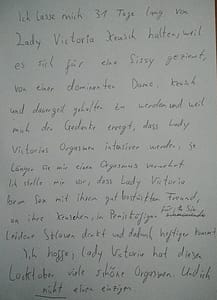 Ich lasse mich 31 Tage lang von
Lady Victoria keusch halten, weil
es sich für eine Sissy geziemt,
von einer dominanten Dame keusch
und dauergeil gehalten zu werden und weil
mich der Gedanke erregt, dass Lady
Victorias Orgasmen intensiver werden, je
länger sie mir einen Orgasmus verwehrt.
Ich stelle mir vor, dass Lady Victoria
beim Sex mit ihrem gut bestückten Freund,
an ihre keuschen, im Peniskäfig für Sie
leidene Sklaven denkt und dadurch heftiger kommt.
Ich hoffe, Lady Victoria hat diesen
Locktober viele schöne Orgasmen. Und ich
nicht einen einzigen.